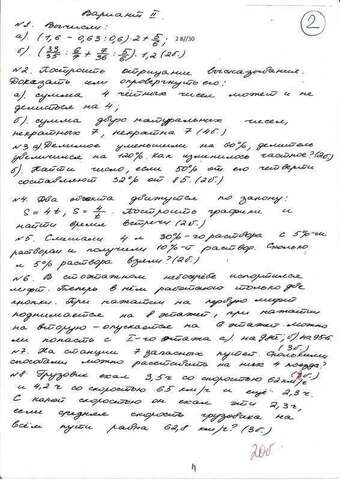 Вариант II.
2
№1. Вычислить:
а) (1,6 - 0,63 : 0,6) · 2 + 5/6;
б) (32/35 : 6/7 + 7/36 : 5/6) · 1,2 (2б.)
№2. Построить отрицание высказывания.
Доказать или опровергнуть его:
а). сумма 4 чётных чисел может и не
делиться на 4;
б). сумма двух натуральных чисел,
некратных 7, некратна 7 (4б.)
№3 а) Делимое уменьшили на 60%, делитель
увеличили на 120%. Как изменилось частное? (2б)
б). Найти число, если 50% от его четверти
составляют 32% от 85. (2б.)
№4. Два объекта движутся по закону:
S = 4t, S = 4/t. Построить графики и
найти время встречи (2б.)
№5. Смешали 4 л 30%-го раствора с 5%-м
раствором и получили 10%-й раствор. Сколько
л 5% раствора взяли? (2б.)
№6. В стоэтажном небоскрёбе испортился
лифт. Теперь в нём работают только две
кнопки. При нажатии на первую лифт
поднимается на 8 этажей, при нажатии
на вторую - опускается на 6 этажей. Можно
ли попасть с I-го этажа а). на
(3б.)
№7. На станции 7 запасных путей. Сколькими
способами можно расставить на них 4 поезда?
(3б.)
№8 Грузовик ехал 3,5ч со скоростью 62 км/ч
и 4,2 ч со скоростью 65 км/ч и ещё 2,3ч.
С какой скоростью он ехал эти 2,3ч,
если средняя скорость грузовика на
всём пути равна 62,8 км/ч? (3б.)
20б.